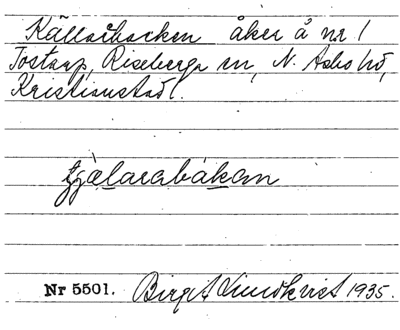 Källarbacken åker å nr 1
Tostarp, Riseberga sn, N. Åsbo hd,
Kristianstad l.
tjælarabakan
Nr 5501. Birgit Lundkvist 1935.